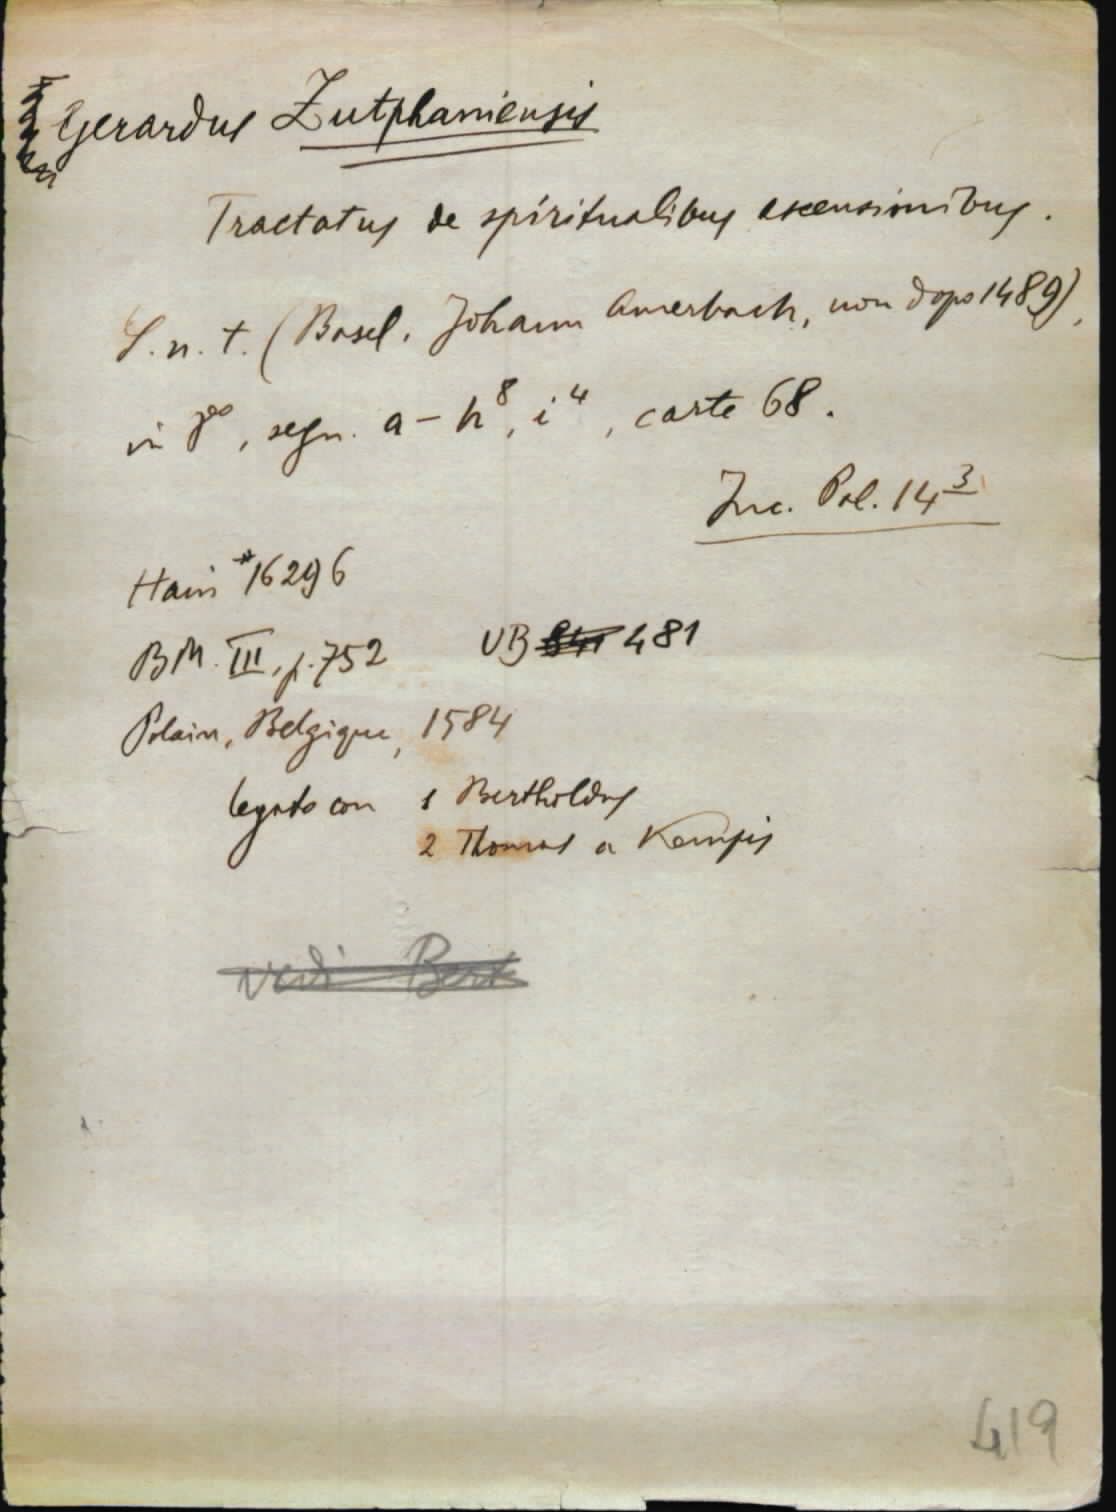 Gerardus Zutphaniensis
Tractatus de spiritualibus ascensionibus.
S. n. t. (Basel, Johann Amerbach, non dopo 1489),
in 8°, segn. a – h⁸, i⁴, carte 68.
Inc. Pal. 14³
Hain *16296
BM. III, p. 752 VB 481
Polain, Belgique, 1584
legato con 1 Bertholdus
2 Thomas a Kempis
vedi Bert
419